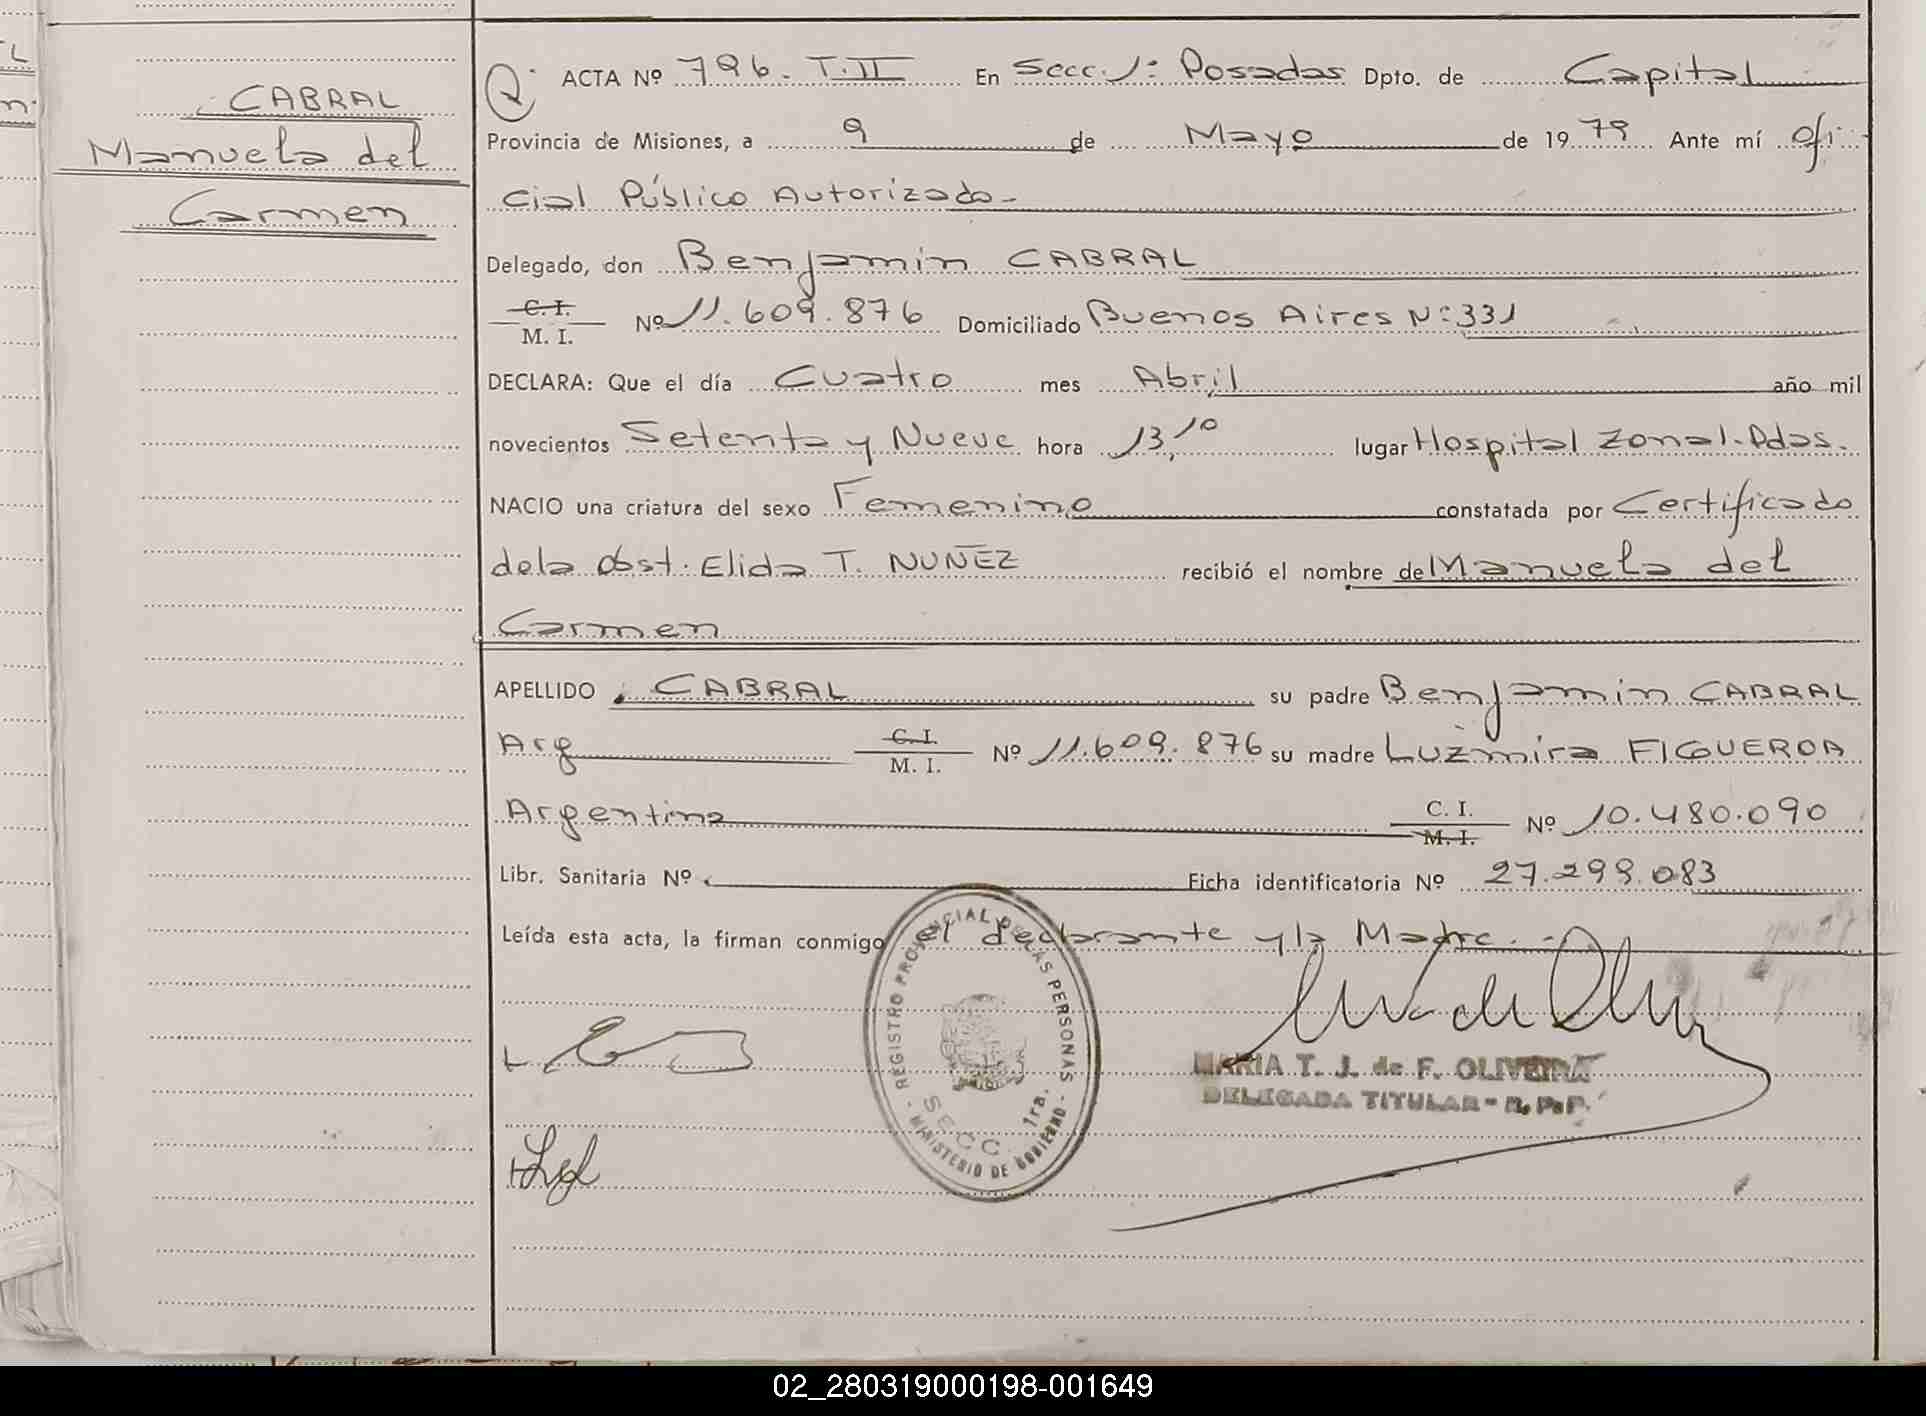 CABRAL
Manuela del
Carmen
ACTA Nº 796. T.II En Secc. 1: Posadas Dpto. de Capital
Provincia de Misiones, a 9 de Mayo de 1979 Ante mí Ofi
cial Público Autorizado-
Delegado, don Benjamin CABRAL
C. I.
M. I. Nº 11.609.876 Domiciliado Buenos Aires Nº 331
DECLARA: Que el día Cuatro mes Abril año mil
novecientos Setenta y Nueve hora 13,10 lugar Hospital Zonal. Pdas.
NACIO una criatura del sexo Femenino constatada por Certificado
de la Obst. Elida T. NUÑEZ recibió el nombre de Manuela del
Carmen
APELLIDO CABRAL su padre Benjamin CABRAL
Arg C. I. M. I. Nº 11.609.876 su madre Luzmira FIGUEROA
Argentina C. I. M. I. Nº 10.480.090
Libr. Sanitaria Nº Ficha identificatoria Nº 27.299.083
Leída esta acta, la firman conmigo el declarante y la Madre.-
REGISTRO PROVINCIAL DE LAS PERSONAS
SECC. 1ra.
- MINISTERIO DE GOBIERNO -
MARIA T. J. de F. OLIVEIRA
DELEGADA TITULAR - R. P. P.
02_280319000198-001649